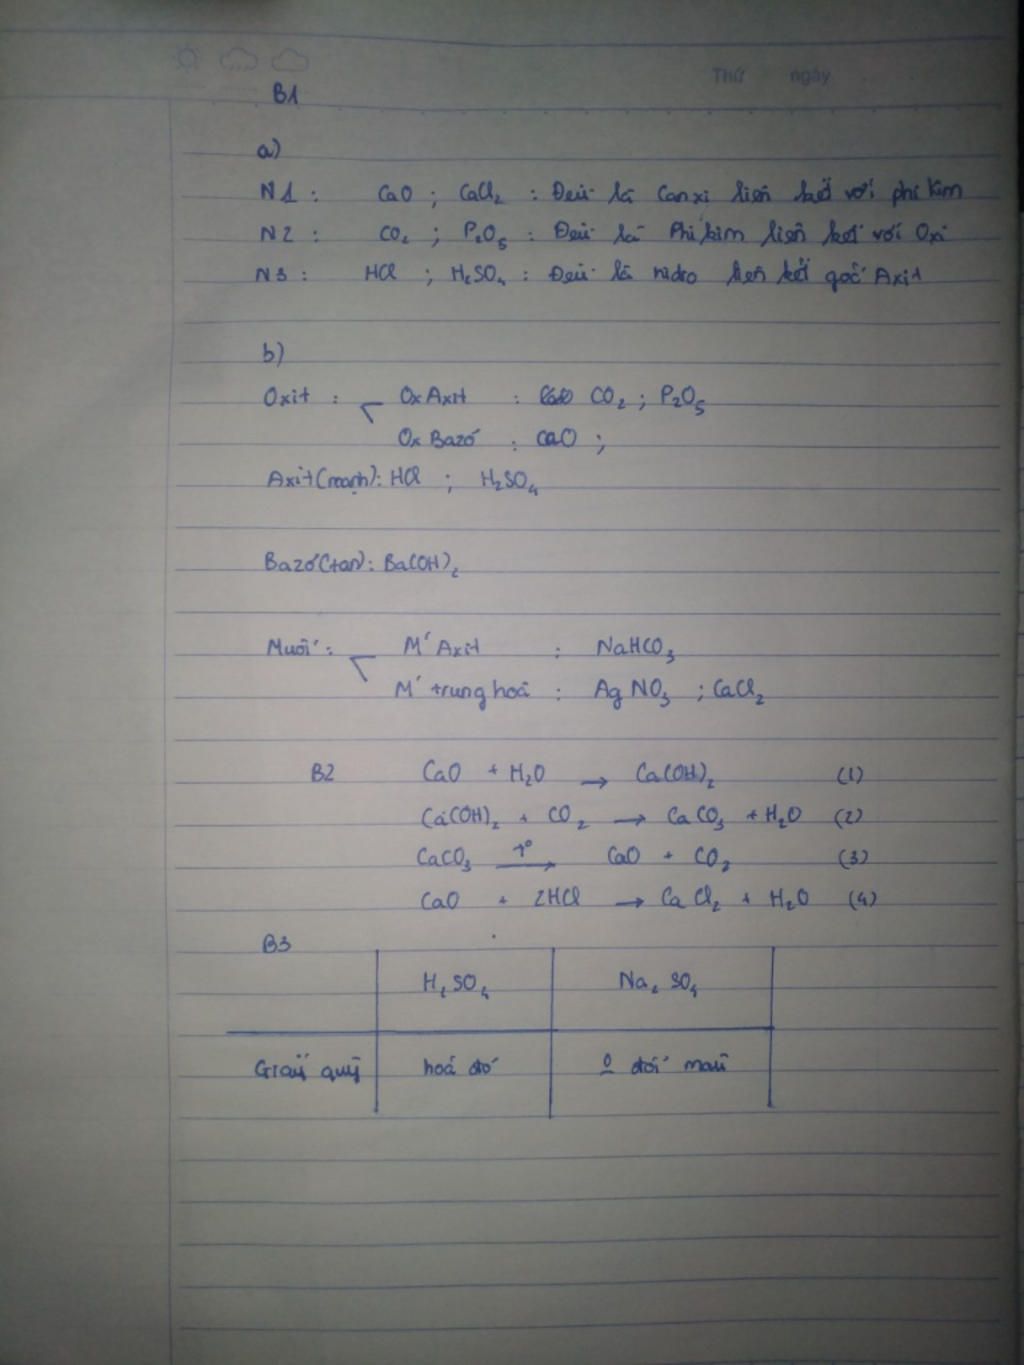 Thứ ngày
B1
a)
N1 : CaO ; CaCl₂ : Đều là Canxi liên kết với phi kim
N2 : CO₂ ; P₂O₅ : Đều là Phi kim liên kết với Oxi
N3 : HCl ; H₂SO₄ : Đều là hidro liên kết gốc Axit
b)
Oxit : OxAxit : CO₂ ; P₂O₅
Ox Bazơ : CaO ;
Axit(mạnh): HCl ; H₂SO₄
Bazơ(tan): Ba(OH)₂
Muối : M' Axit : NaHCO₃
M' trung hoà : AgNO₃ ; CaCl₂
B2 CaO + H₂O → Ca(OH)₂ (1)
Ca(OH)₂ + CO₂ → CaCO₃ + H₂O (2)
CaCO₃ —t°→ CaO + CO₂ (3)
CaO + 2HCl → CaCl₂ + H₂O (4)
B3
H₂SO₄ Na₂SO₄
Giấy quỳ hoá đỏ o đổi màu